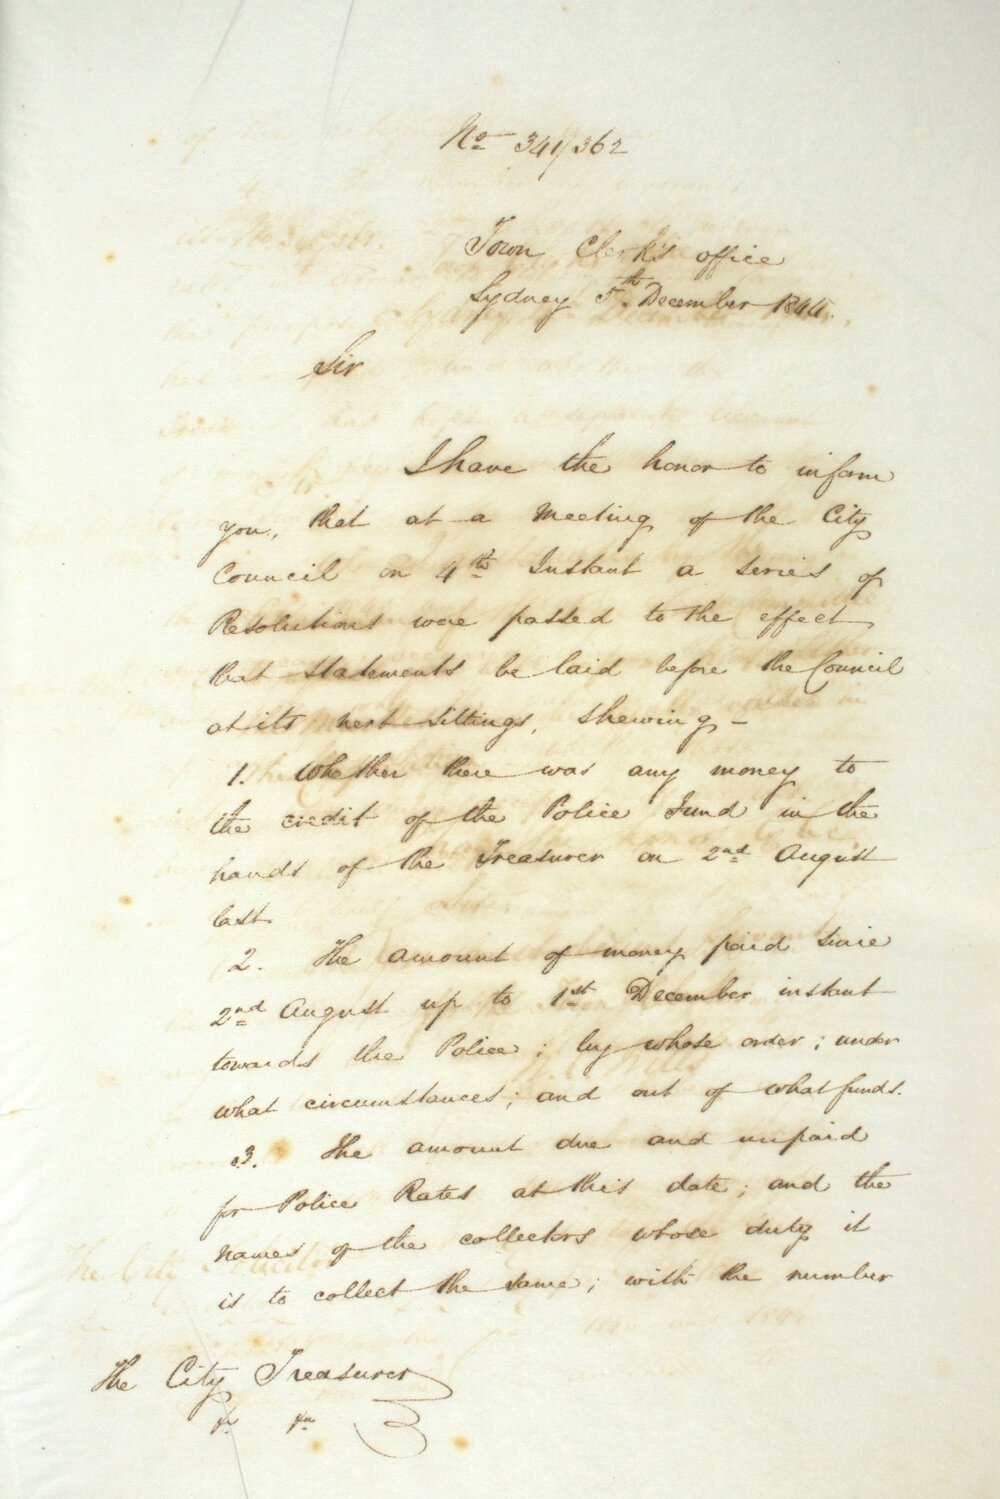 No 341/362
Town Clerk's office
Sydney 5th December 1844.
Sir
I have the honor to inform
you, that at a Meeting of the City
Council on 4th Instant a series of
Resolutions were passed to the effect
that statements be laid before the Council
at its next sittings, shewing -
1. Whether there was any money to
the credit of the Police Fund in the
hands of the Treasurer on 2nd August
last.
2. The amount of money paid since
2nd August up to 1st December instant
towards the Police; by whose order; under
what circumstances; and out of what funds.
3. The amount due and unpaid
for Police Rates at this date; and the
names of the collectors whose duty it
is to collect the same; with the number
The City Treasurer